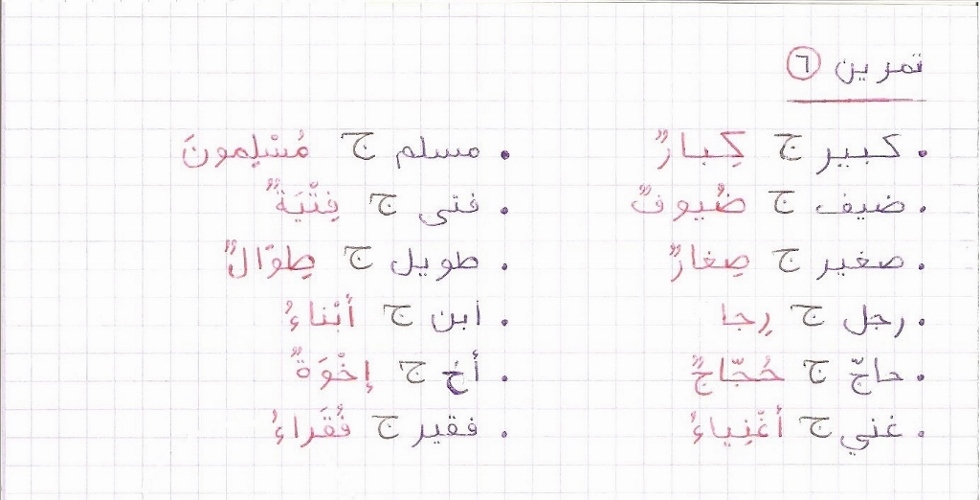 تمرين ٦
• كبير ج كِبارٌ • مسلم ج مُسْلِمونَ
• ضيف ج ضُيوفٌ • فتى ج فِتْيَةٌ
• صغير ج صِغارٌ • طويل ج طِوَالٌ
• رجل ج رِجا • ابن ج أبْناءُ
• حاجّ ج حُجّاجٌ • أخ ج إخْوَةٌ
• غني ج أغْنِياءُ • فقير ج فُقَراءُ